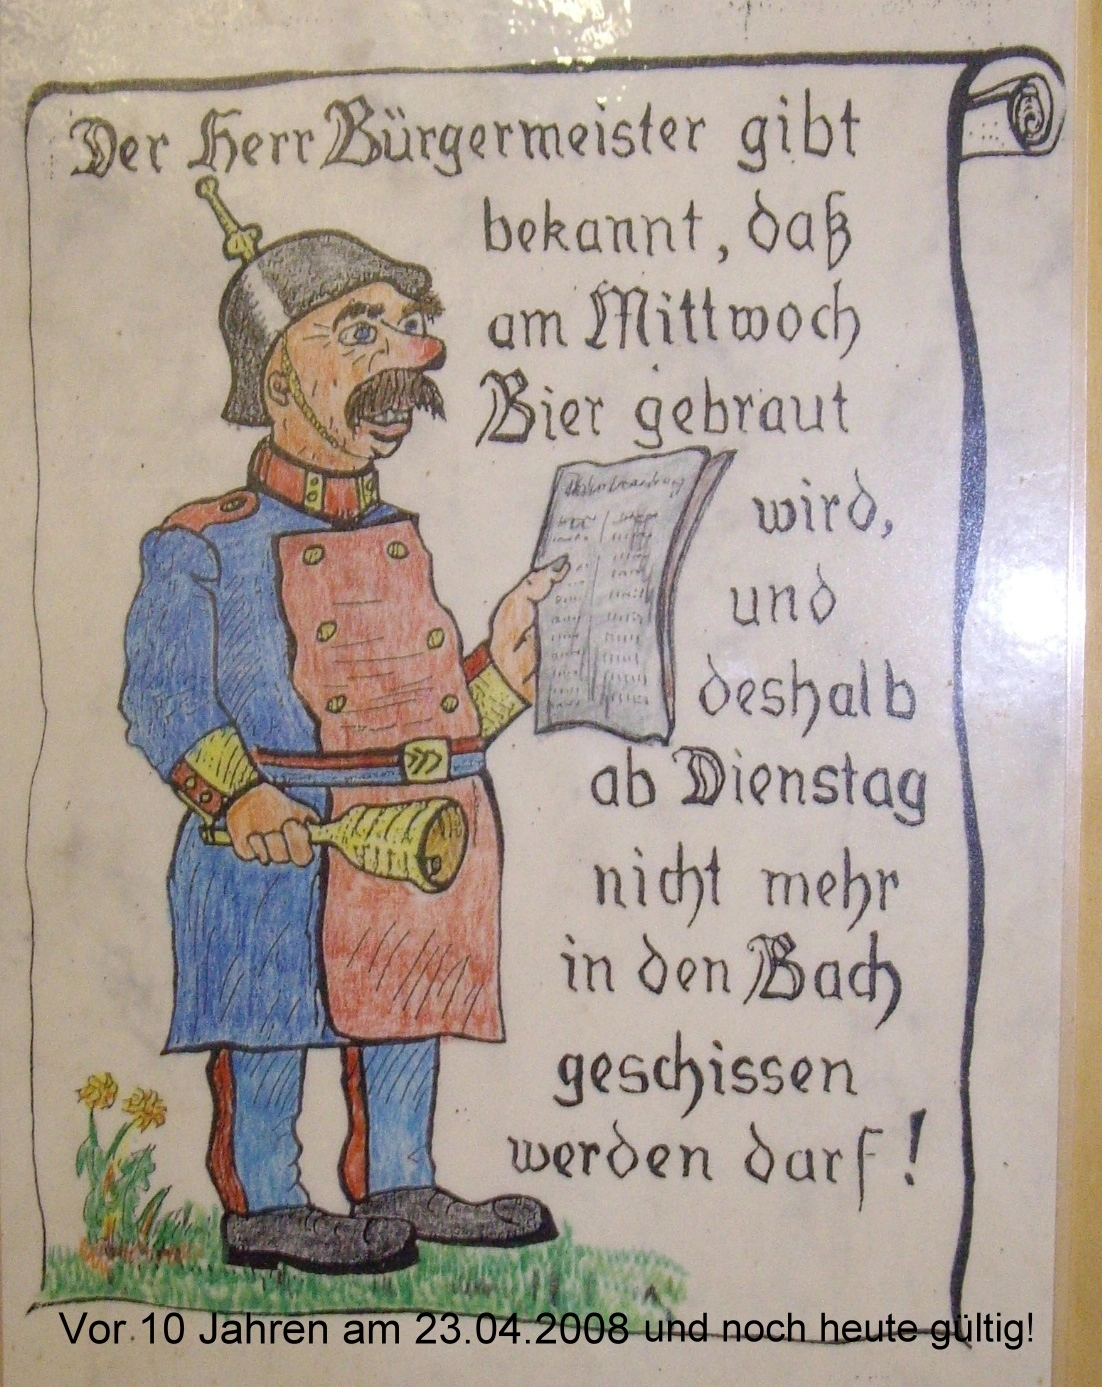 Der Herr Bürgermeister gibt
bekannt, daß
am Mittwoch
Bier gebraut
wird,
und
deshalb
ab Dienstag
nicht mehr
in den Bach
geschissen
werden darf!
Vor 10 Jahren am 23.04.2008 und noch heute gültig!